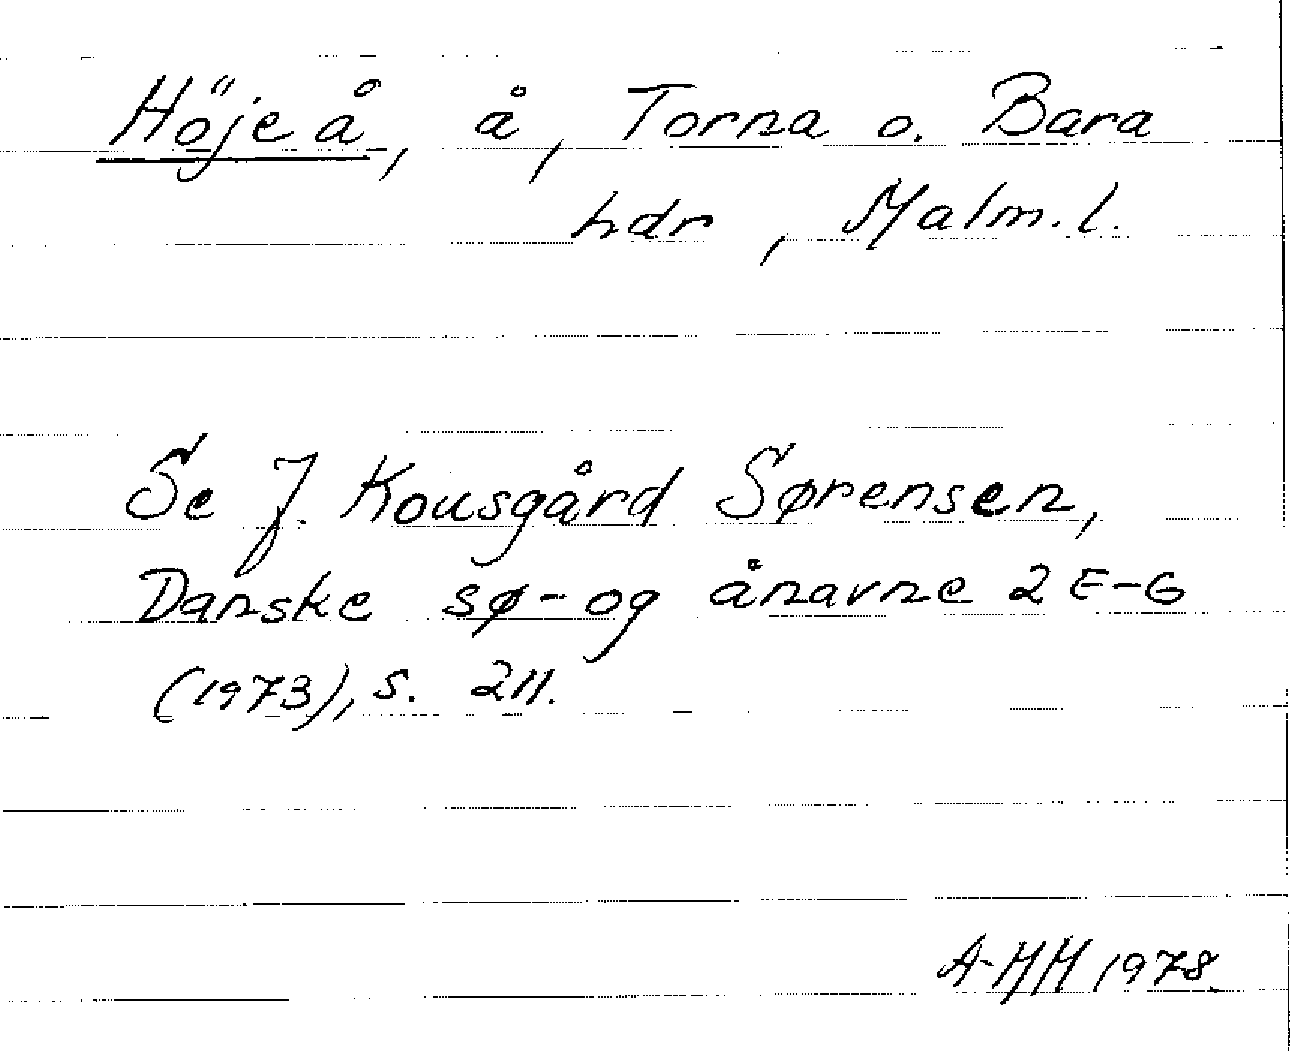 Höje å, å, Torna o. Bara
hdr, Malm. l.
Se J. Kousgård Sørensen,
Danske sø- og ånavne 2 E-G
(1973), s. 211.
A-MH 1978.